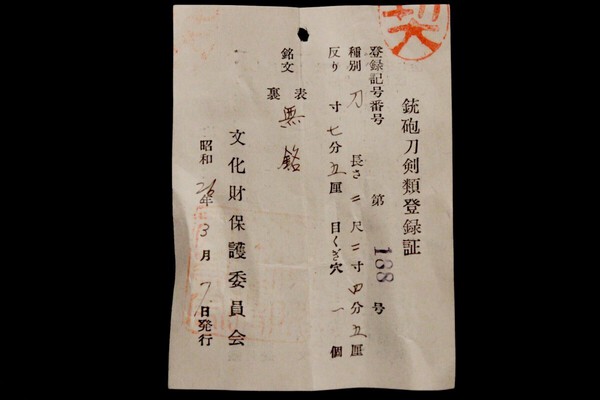 銃砲刀剣類登録証
登録記号番号 第 188 号
種別 刀 長さ 二尺二寸四分五厘
反り 寸七分五厘 目くぎ穴 一個
銘文
表 無銘
裏
文化財保護委員会
昭和26年3月7日発行